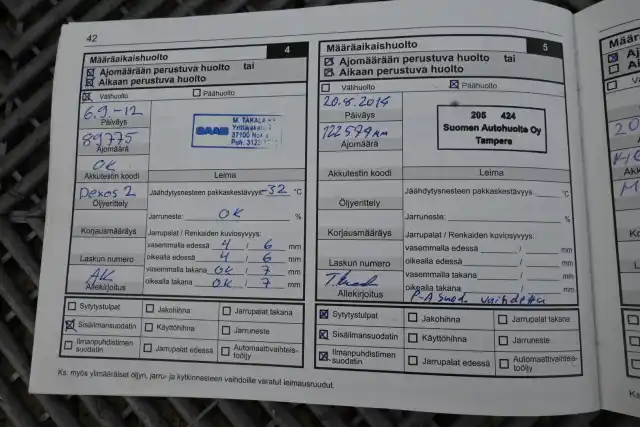 42
Määräaikaishuolto 4
Ajomäärään perustuva huolto tai
Aikaan perustuva huolto
Välihuolto Päähuolto
6.9.-12
Päiväys
89775
Ajomäärä
OK
Akkutestin koodi
SAAB
M. TAKALA
37100
Puh.
Leima
Dexos 2
Öljyerittely
Jäähdytysnesteen pakkaskestävyys -32 °C
Jarruneste: OK %
Korjausmääräys
Jarrupalat / Renkaiden kuviosyvyys:
vasemmalla edessä 4 / 6 mm
Laskun numero
oikealla edessä 4 / 6 mm
vasemmalla takana OK / 7 mm
AK
oikealla takana OK / 7 mm
Allekirjoitus
Sytytystulpat Jakohihna Jarrupalat takana
Sisäilmansuodatin Käyttöhihna Jarruneste
Ilmanpuhdistimen suodatin Jarrupalat edessä Automaattivaihteistoöljy
Ks. myös ylimääräiset öljyn, jarru- ja kytkinnesteen vaihdoille varatut leimausruudut.
Määräaikaishuolto 5
Ajomäärään perustuva huolto tai
Aikaan perustuva huolto
Välihuolto Päähuolto
20.8.2014
Päiväys
122579 km
Ajomäärä
205 424
Suomen Autohuolto Oy
Tampere
Akkutestin koodi
Leima
Öljyerittely
Jäähdytysnesteen pakkaskestävyys: °C
Jarruneste: %
Korjausmääräys
Jarrupalat / Renkaiden kuviosyvyys:
vasemmalla edessä / mm
Laskun numero
oikealla edessä / mm
vasemmalla takana / mm
oikealla takana / mm
Allekirjoitus
P-A suod. vaihdettu
Sytytystulpat Jakohihna Jarrupalat takana
Sisäilmansuodatin Käyttöhihna Jarruneste
Ilmanpuhdistimen suodatin Jarrupalat edessä Automaattivaihteistoöljy